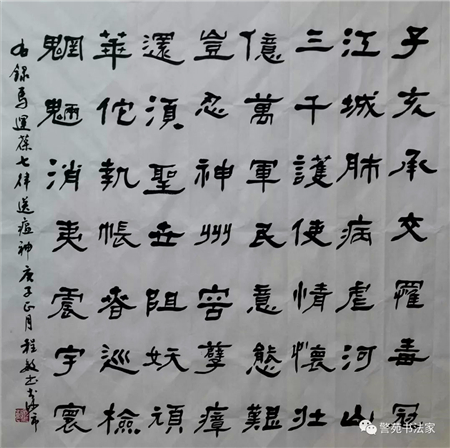 子亥承交罹毒冠
江城肺病虐河山
三千護使情懷壯
億萬軍民意態艱
豈忍神州容孽瘴
還須聖世阻妖頑
華佗執帳春巡檢
魍魎消夷震宇寰
右錄馬運葆七律送瘟神庚子正月程敏
警苑书法家